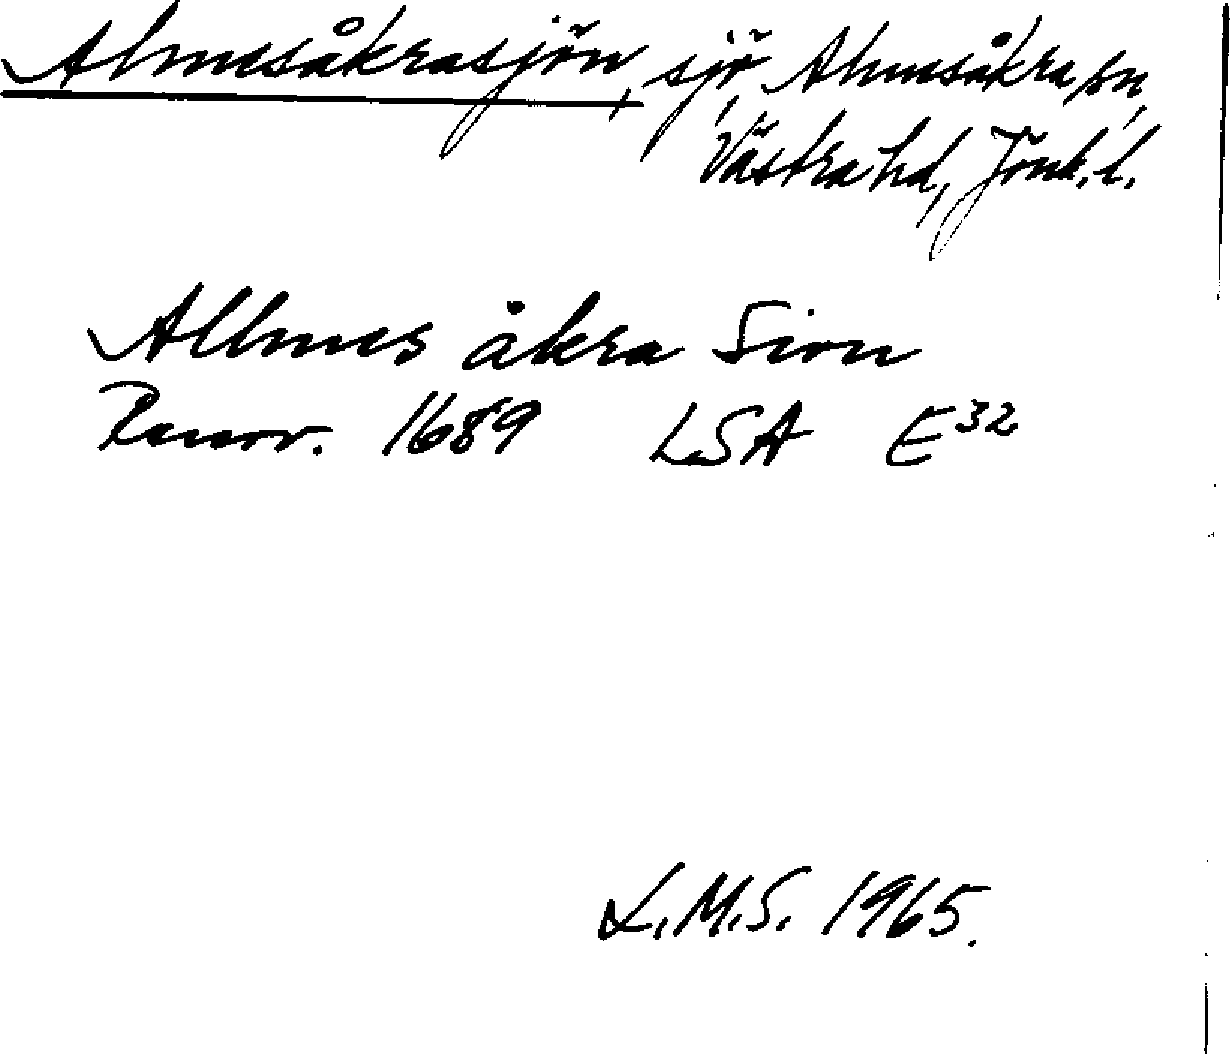 Almesåkrasjön, sjö, Almesåkra sn,
Västra hd, Jönk. l.
Allmes åkra Sion
Renov. 1689 LSA E32
L.M.S. 1965.